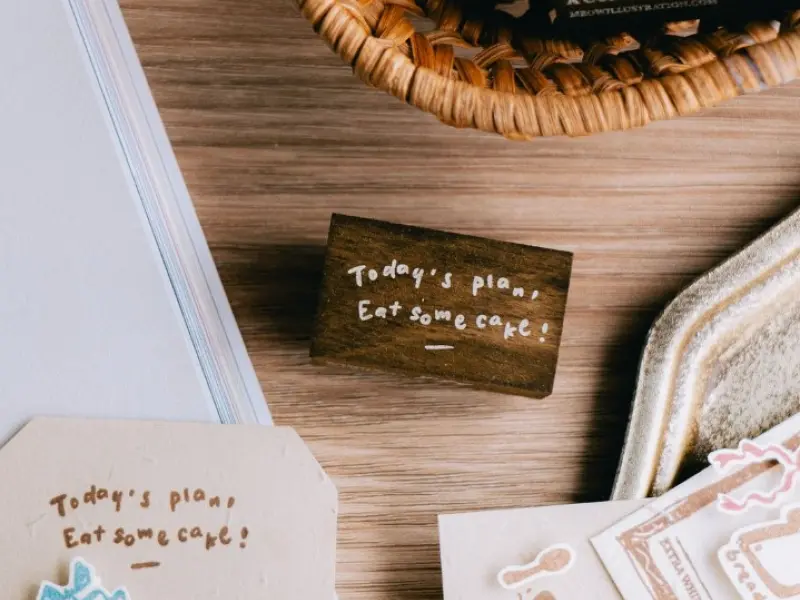 MEOWILLUSTRATION.COM
Today's plan,
Eat some cake!
Today's plan,
Eat some cake!
EXTRA
bread